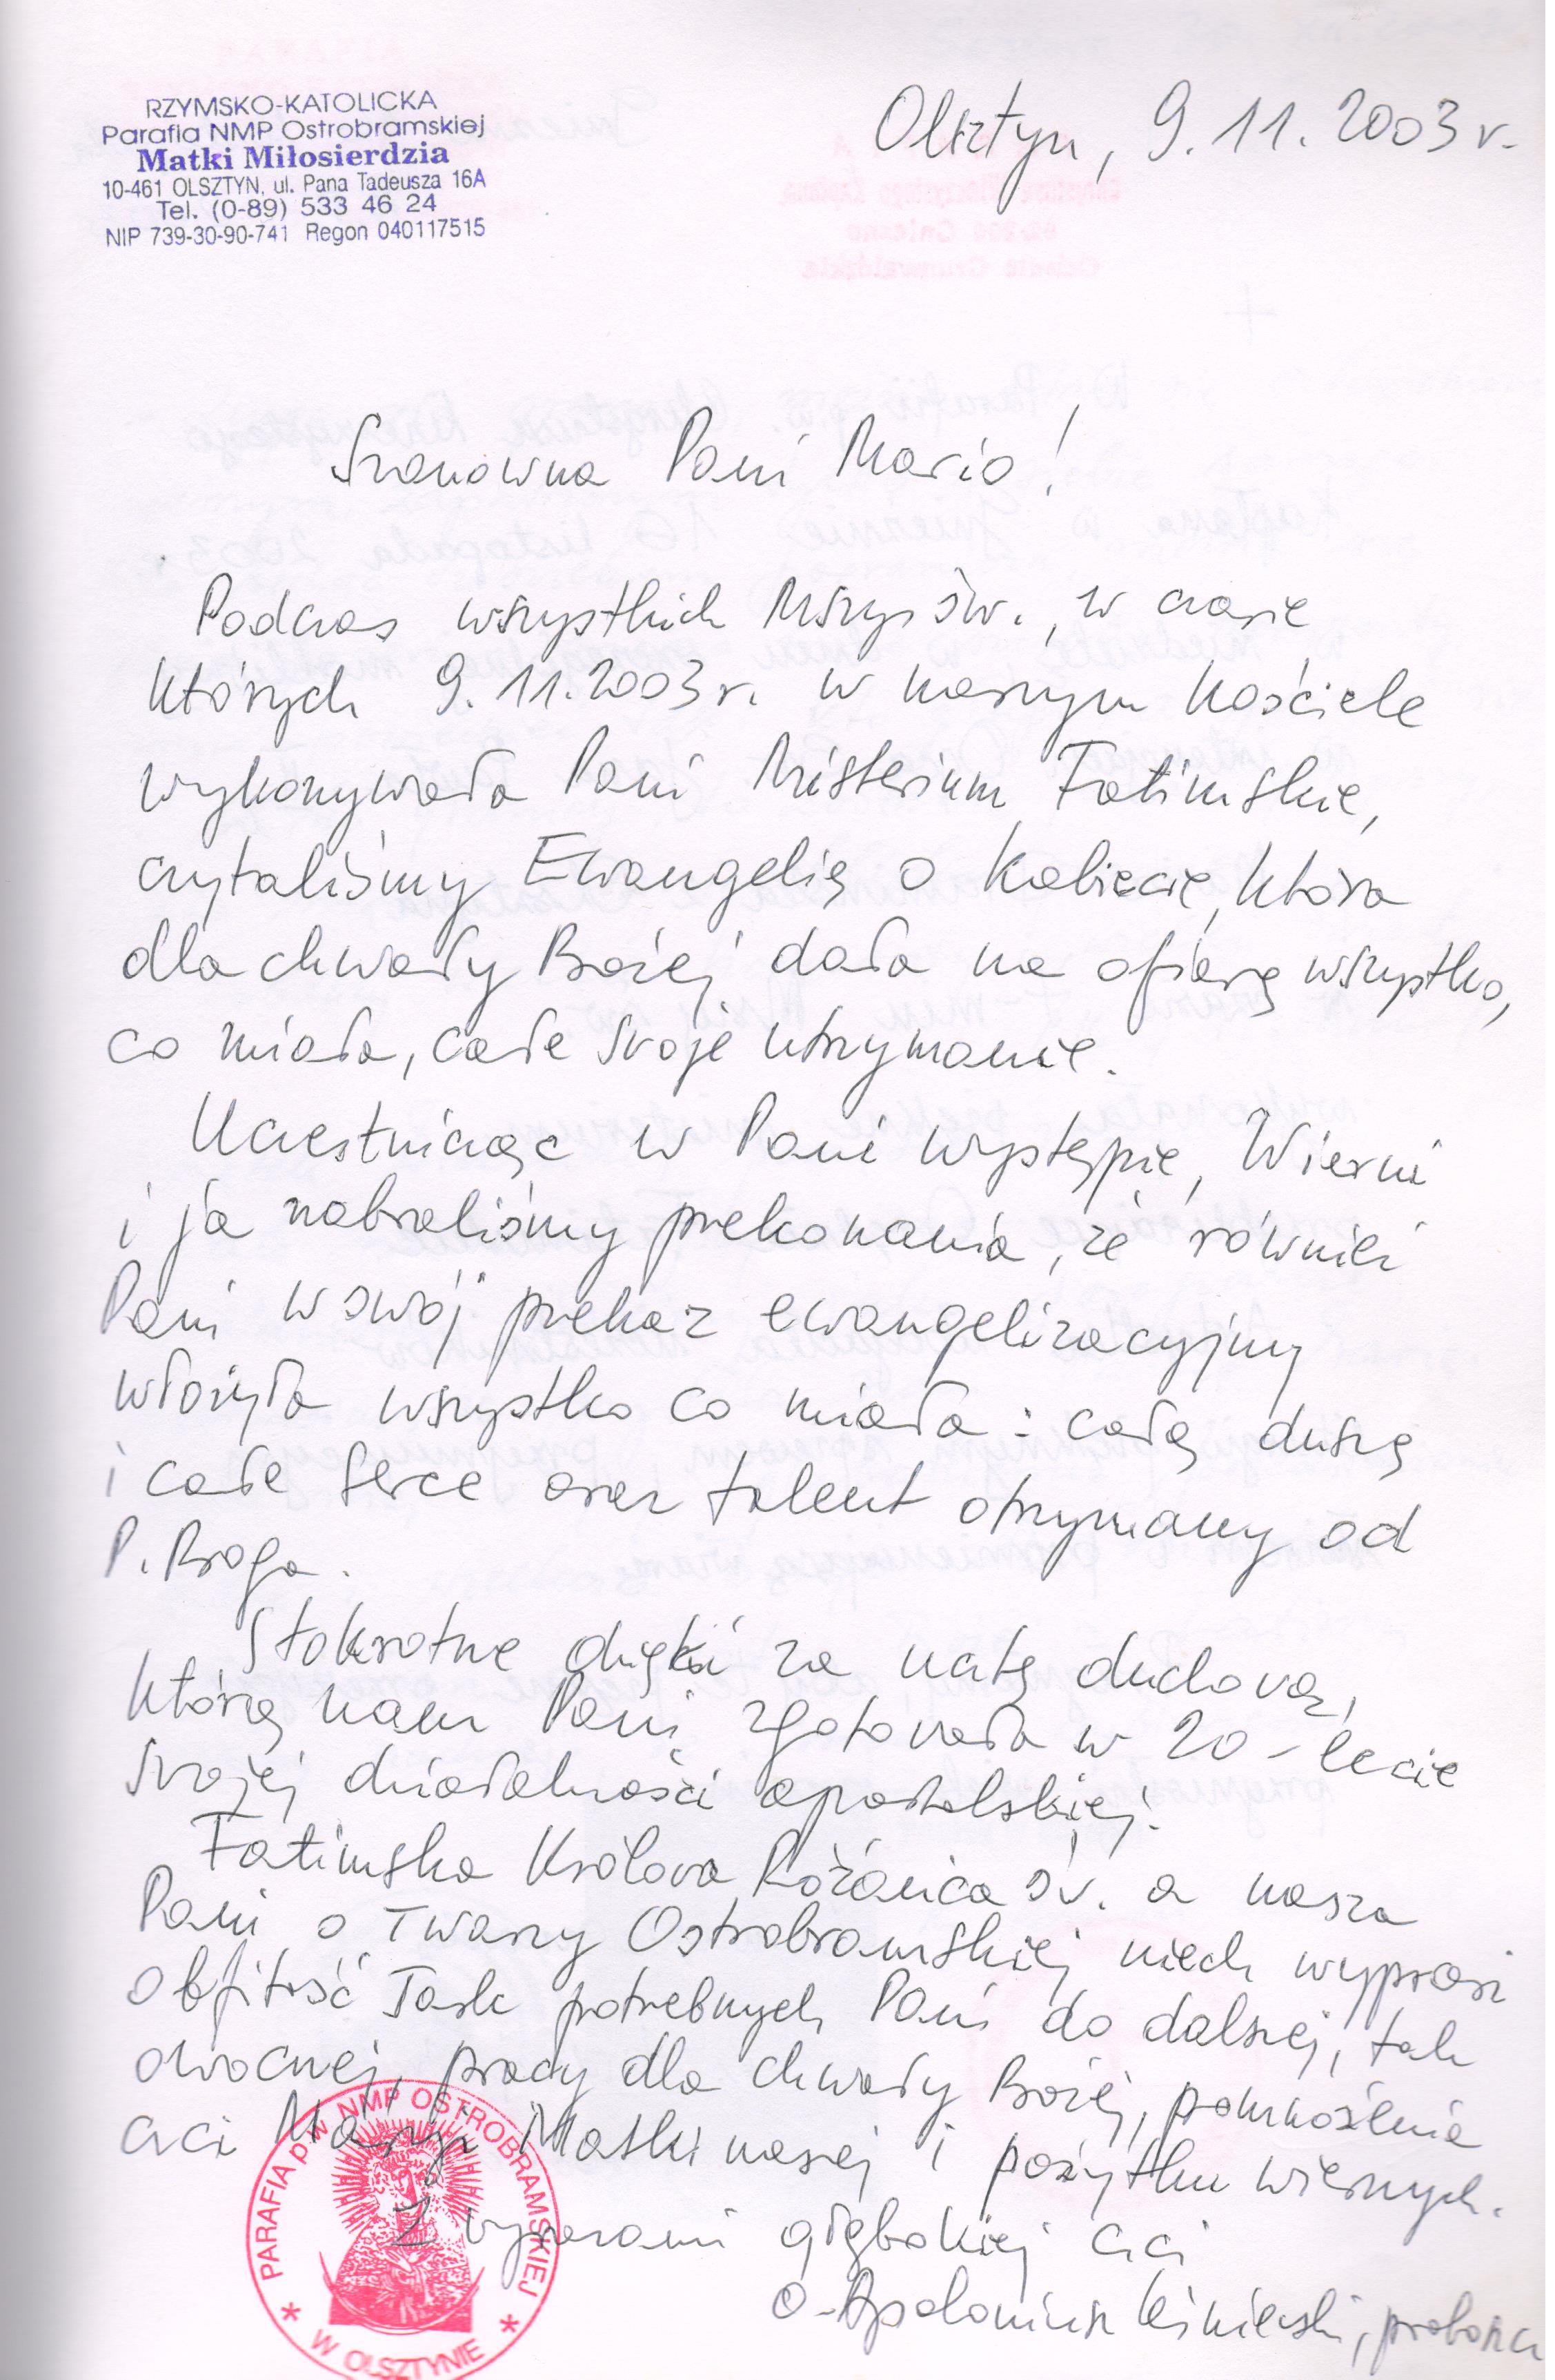 RZYMSKO-KATOLICKA
Parafia NMP Ostrobramskiej
Matki Miłosierdzia
10-461 OLSZTYN, ul. Pana Tadeusza 16A
Tel. (0-89) 533 46 24
NIP 739-30-90-741 Regon 040117515
Olsztyn, 9.11.2003 r.
Szanowna Pani Mario!
Podczas wszystkich Mszy św., w czasie
których 9.11.2003 r. w naszym Kościele
wykonywała Pani Misterium Fatimskie,
czytaliśmy Ewangelię o Kobiecie, która
dla chwały Bożej dała na ofiarę wszystko,
co miała, całe swoje utrzymanie.
Uczestnicząc w Pani występie, Wierni
i ja nabraliśmy przekonania, że również
Pani w swój przekaz ewangelizacyjny
włożyła wszystko co miała: całą duszę
i całe serce oraz talent otrzymany od
P. Boga.
Stokrotne dzięki za ucztę duchową,
którą nam Pani zgotowała w 20-lecie
swojej działalności apostolskiej.
Fatimska Królowa Różańca św. a nasza
Pani o Twarzy Ostrobramskiej niech wyprosi
obfitość łask potrzebnych Pani do dalszej, tak
owocnej, pracy dla chwały Bożej, pomnożenia
czci Maryi Matki naszej i pożytku wiernych.
Z wyrazami głębokiej czci
o. Apoloniusz proboszcz
PARAFIA pw NMP OSTROBRAMSKIEJ
* W OLSZTYNIE *